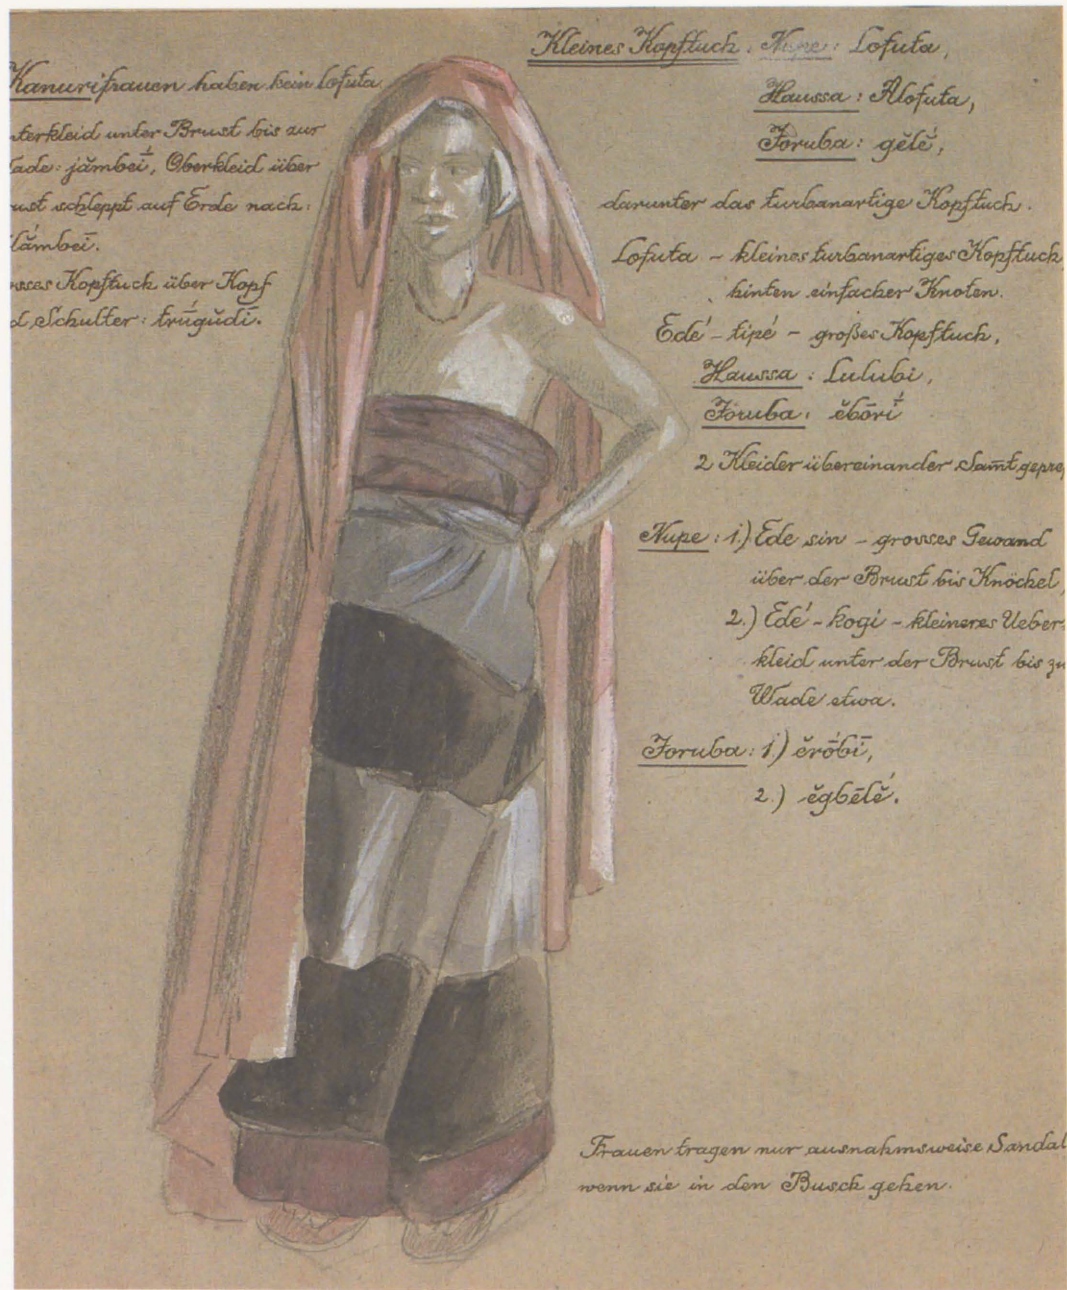 Kanurifrauen haben kein Lofuta
nterkleid unter Brust bis zur
ade: jămbeī, Oberkleid über
ust schleppt auf Erde nach:
lămbeī.
sses Kopftuch über Kopf
d Schulter: trŭgŭdī.
Kleines Kopftuch: Nupe: Lofuta,
Haussa: Alofuta,
Joruba: gĕlĕ́,
darunter das turbanartige Kopftuch.
Lofuta - kleines turbanartiges Kopftuch
hinten einfacher Knoten.
Edé - tipé - großes Kopftuch,
Haussa: Lulubi,
Joruba: ĕbōrī
2 Kleider übereinander Samt gepre
Nupe: 1.) Ede sin - grosses Gewand
über der Brust bis Knöchel,
2.) Edé - kogi - kleineres Ueber-
kleid unter der Brust bis zu
Wade etwa.
Joruba: 1.) ĕrōbī,
2.) ĕgbēlĕ́.
Frauen tragen nur ausnahmsweise Sandal
wenn sie in den Busch gehen.